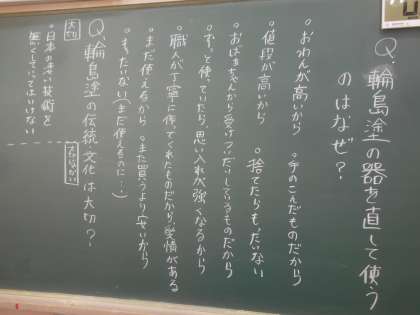 Q.輪島塗の器を直して使う
のはなぜ?
・おわんが高いから ・手のこんだものだから
・値段が高いから ・捨てたらもったいない
・おばあちゃんから受けついだりしているものだから
・ずっと使っていたら、思い入れが強くなるから
・職人が丁寧に作ってくれたものだから、愛情がある
・まだ使えるから ・また買うより安いから
・もったいない(まだ使えるのに…)
Q.輪島塗の伝統文化は大切?
大切
・日本の
技術を
無くしてはいけない